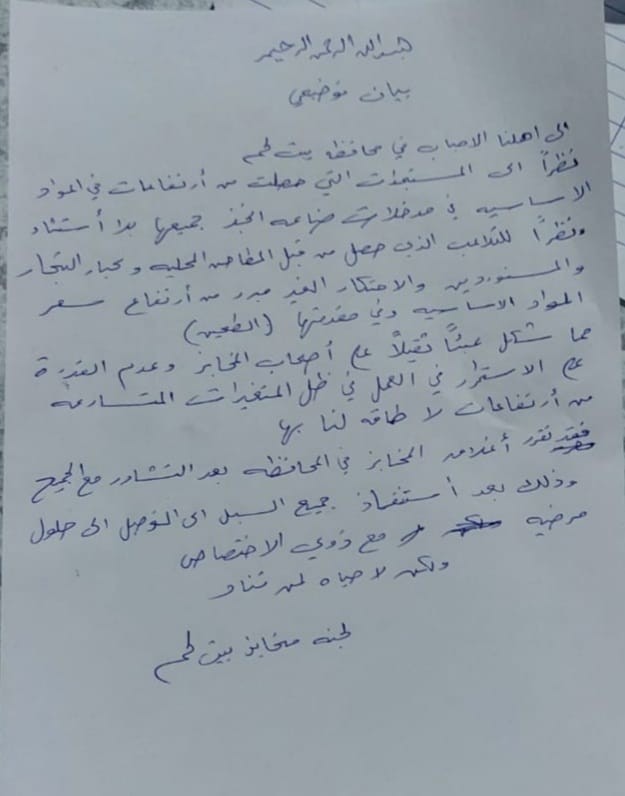 بسم الله الرحمن الرحيم
بيان توضيحي
الى اهلنا الاحباب في محافظة بيت لحم
نظراً الى المستجدات التي حصلت من أرتفاعات في المواد
الاساسيه في مدخلات صناعه الخبز جميعها بلا أستثناء
ونظراً للتلاعب الذي حصل من قبل المطاحن المحليه وكبار التجار
والمستوردين والاحتكار الغير مبرر من أرتفاع سعر
المواد الاساسيه وفي مقدمتها (الطحين)
مما شكل عبئاً ثقيلاً على أصحاب المخابز وعدم القدرة
على الاستمرار في العمل في ظل المتغيرات المتسارعه
من أرتفاعات لا طاقه لنا بها
فقد تقرر أغلاق المخابز في المحافظه بعد التشاور مع الجميع
وذلك بعد أستنفاذ جميع السبل الى التوصل الى حلول
مرضيه مع ذوي الاختصاص
ولكن لا حياه لمن تناد
لجنه مخابز بيت لحم